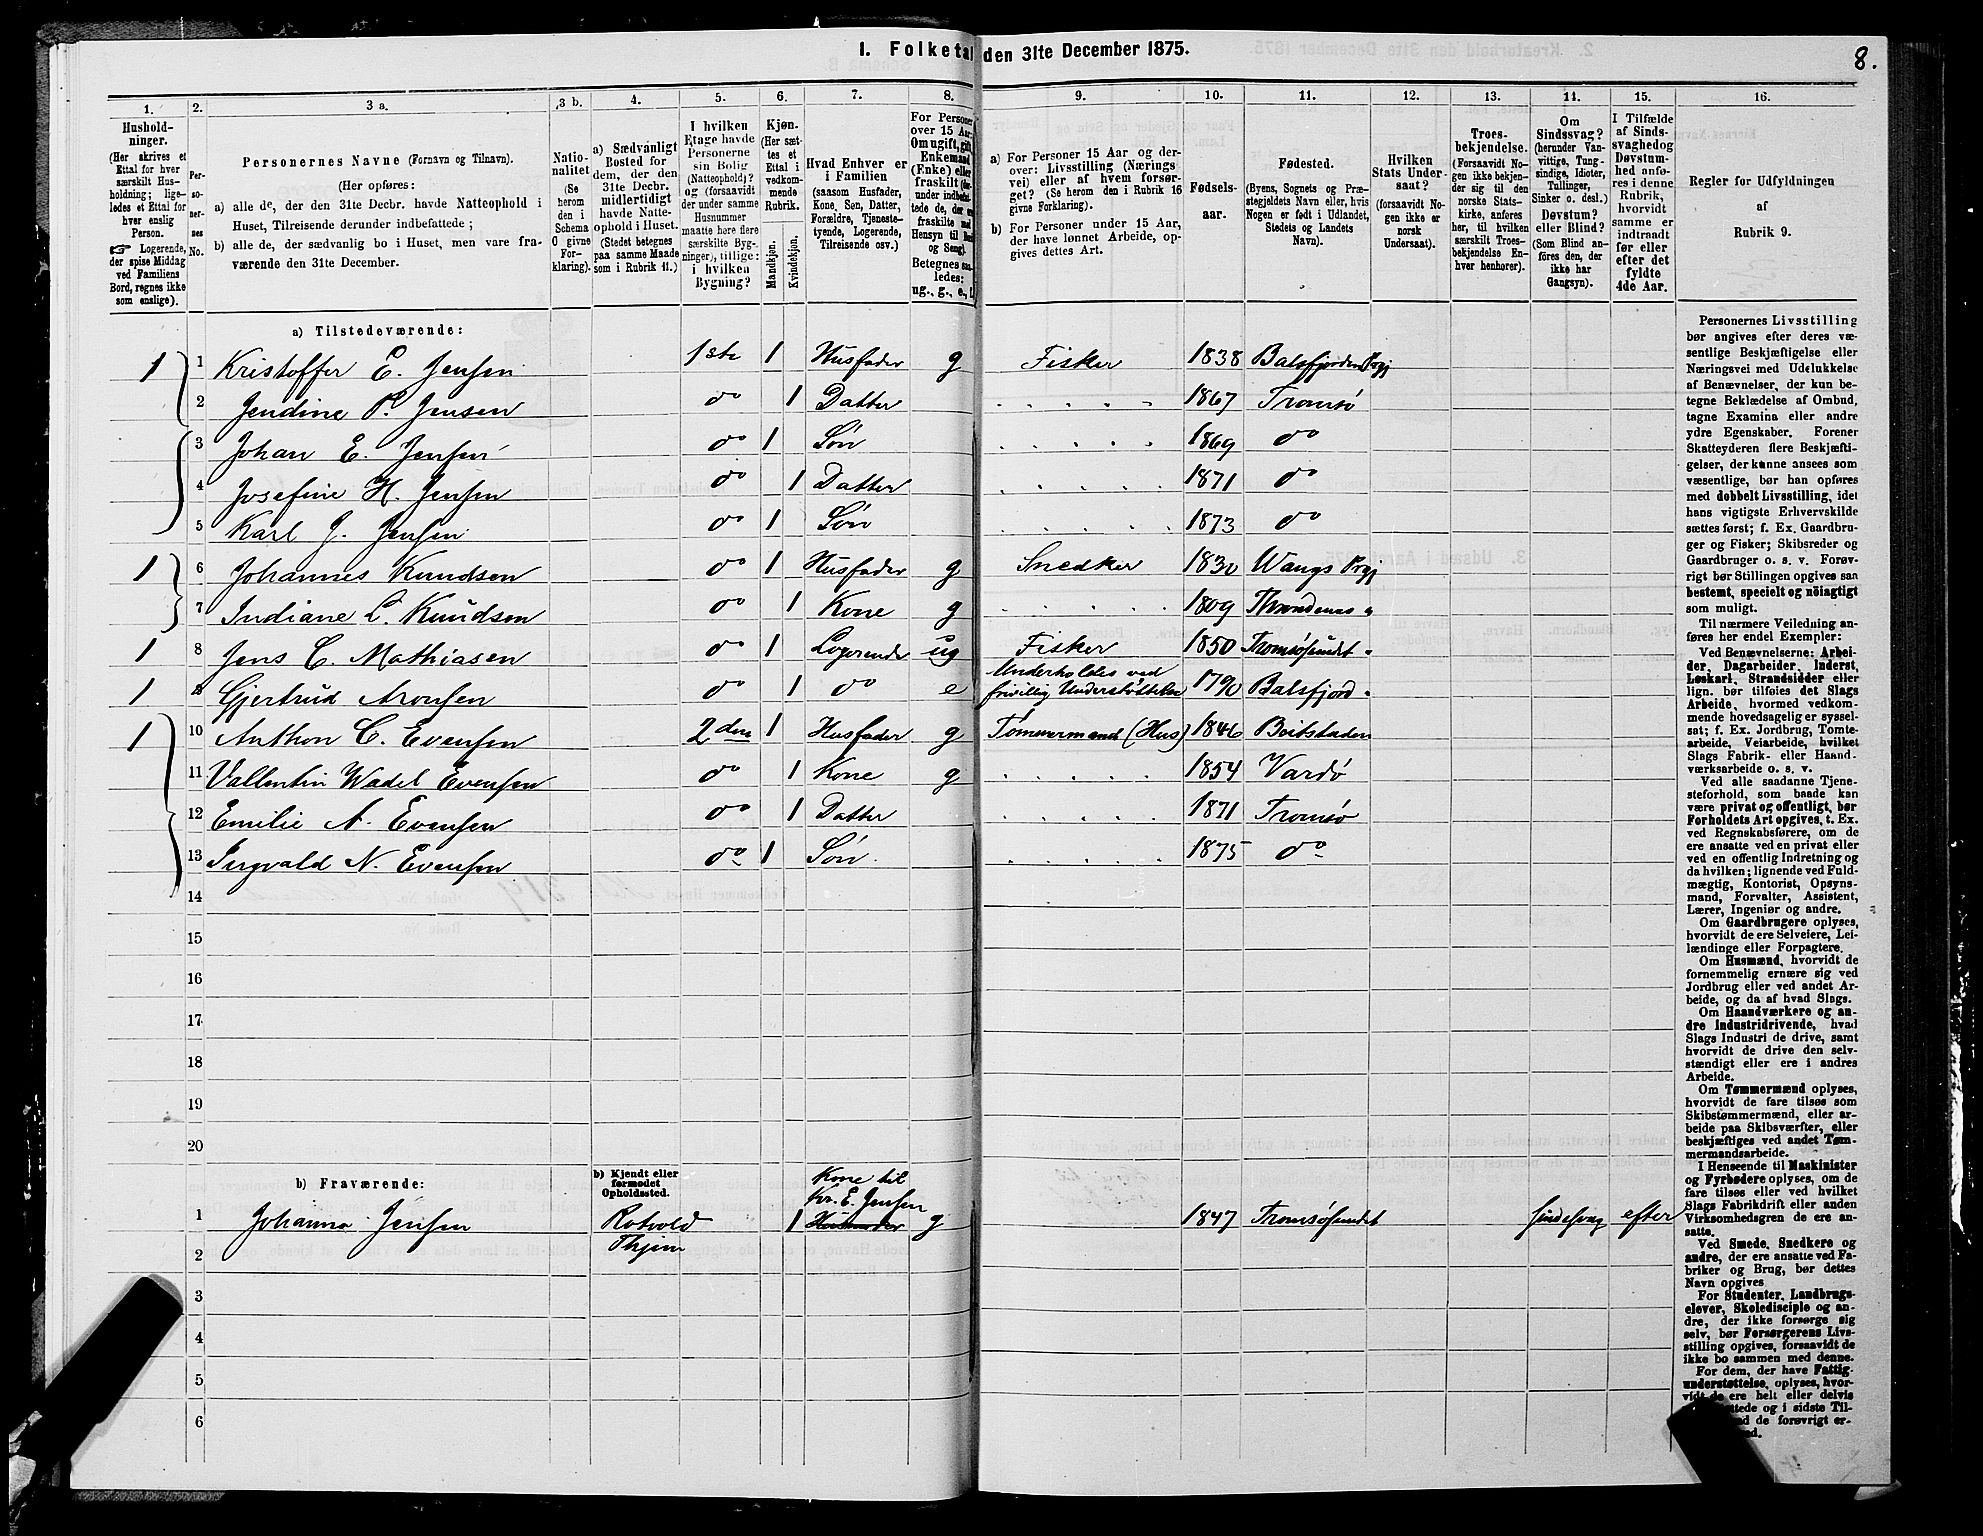 1. Folketal den 31te December 1875.
8.
1. 2. 3 a. 3 b. 4. 5. 6. 7. 8. 9. 10. 11. 12. 13. 14. 15. 16.
Hushold-
ninger.
(Her skrives et
Ettal for hver
særskilt Hus-
holdning; lige-
ledes et Ettal for
hver enslig
Person.
☞ Logerende,
der spise Middag
ved Familiens
Bord, regnes ikke
som enslige).
Per-
so-
ner-
nes
No.
Personernes Navne (Fornavn og Tilnavn).
(Her opføres:
a) alle de, der den 31te Decbr. havde Natteophold i
Huset, Tilreisende derunder indbefattede;
b) alle de, der sædvanlig bo i Huset, men vare fra-
værende den 31te December.
Natio-
nalitet
(Se
herom
den i
Schema
O givne
For-
klaring).
a) Sædvanligt
Bosted for
dem, der den
31te Decbr.
midlertidigt
havde Natte-
ophold i Huset.
(Stedet betegnes
paa samme Maade
som i Rubrik 11.)
I hvilken
Etage havde
Personerne
sin Bolig
(Natteophold)?
og (forsaavidt
der under samme
Husnummer
maatte høre flere
særskilte Byg-
ninger), tillige:
i hvilken
Bygning?
Kjøn.
(Her sæt-
tes et
Ettal i
vedkom-
mende
Rubrik.
Mandkjøn.
Kvindekjøn.
Hvad Enhver er
i Familien
(saasom Husfader,
Kone, Søn, Datter,
Forældre, Tjeneste-
tyende, Logerende,
Tilreisende osv.)
For Personer
over 15 Aar:
Om ugift, gift,
Enkemand
(Enke) eller
fraskilt
Betegnes saa-
ledes:
ug., g., e.,
a) For Personer 15 Aar og der-
over: Livsstilling (Nærings-
vei) eller af hvem forsør-
get? (Se herom den i Rubrik 16
givne Forklaring).
b) For Personer under 15 Aar,
der have lønnet Arbeide, op-
gives dettes Art.
Fødsels-
aar.
Fødested.
(Byens, Sognets og Præ-
stegjeldets Navn, eller, hvis
Nogen er født i Udlandet,
Stedets og Landets
Navn).
Hvilken
Stats Under-
saat?
(forsaavidt No-
gen ikke er
norsk
Undersaat).
Troes-
bekjendelse.
(Forsaavidt No-
gen ikke bekjen-
der sig til den
norske Stats-
kirke, anføres
her, til hvilken
særskilt Troes-
bekjendelse En-
hver henhører).
Om
Sindssvag?
(herunder Van-
vittige, Tung-
sindige, Idioter,
Tullinger,
Sinker o. desl.)
Døvstum?
eller Blind?
(Som Blind an-
føres den, der
ikke har
Gangsyn).
I Tilfælde
af Sinds-
svaghed og
Døvstum-
hed anfø-
res i denne
Rubrik,
hvorvidt
samme er
indtraadt
før eller
efter det
fyldte
4de Aar.
Regler for Udfyldningen
af
Rubrik 9.
a) Tilstedeværende:
1 1 Kristoffer E. Jensen 1ste 1 Husfader g Fisker 1838 Balsfjorden Prgj
2 Jendine P. Jensen do 1 Datter 1867 Tromsø
3 Johan E. Jensen do 1 Søn 1869 do
4 Josefine H. Jensen do 1 Datter 1871 do
5 Karl J. Jensen do 1 Søn 1873 do
1 6 Johannes Knudsen do 1 Husfader g Snedker 1830 Wangs Prgj
7 Indiane L. Knudson do 1 Kone g 1809 Throndenes "
1 8 Jens C. Mathiasen do 1 Logerende ug Fisker 1850 Tromsøsundet "
1 9 Gjertrud Aronsen do 1 do e Underholdes ved
frivillig Understøttelse 1790 Balsfjord "
1 10 Anthon C. Evensen 2den 1 Husfader g Tømmermand (Hus) 1846 Beitstaden
11 Vallentin Wadel Evensen do 1 Kone g 1854 Vardø
12 Emilie A. Evensen do 1 Datter 1871 Tromsø
13 Ingvald N. Evensen do 1 Søn 1875 do
14
15
16
17
18
19
20
b) Fraværende:
b) Kjendt eller
formodet
Opholdssted.
Kone til
Kr. E. Jensen
1 Johanna Jensen Rotvold 1 Husmoder g 1847 Tromsøsundet sindssvag efter
2 Thjem
3
4
5
6
Personernes Livsstilling
bør angives efter deres væ-
sentlige Beskjæftigelse eller
Næringsvei med Udelukkelse
af Benævnelser, der kun be-
tegne Beklædelse af Ombud,
tagne Examina eller andre
ydre Egenskaber. Forener
Skatteyderen flere Beskjæfti-
gelser, der kunne ansees som
væsentlige, bør han opføres
med dobbelt Livsstilling, idet
hans vigtigste Erhvervskilde
sættes først; f. Ex. Gaardbru-
ger og Fisker; Skibsreder og
Gaardbruger o. s. v. Forøv-
rigt bør Stillingen opgives saa
bestemt, specielt og nöiagtigt
som muligt.
Til nærmere Veiledning an-
føres her endel Exempler:
Ved Benævnelserne: Arbei-
der, Dagarbeider, Inderst,
Løskarl, Strandsidder eller
lign. bør tilføies det Slags
Arbeide, hvormed vedkom-
mende hovedsagelig er syssel-
sat; f. Ex. Jordbrug, Tomte-
arbeide, Veiarbeide, hvilket
Slags Fabrik- eller Haand-
værksarbeide o. s. v.
Ved alle saadanne Tjene-
steforhold, som baade kan
være privat og offentligt, bør
Forholdets Art opgives, t. Ex.
ved Regnskabsførere, om de
ere ansatte ved en privat eller
ved en offentlig Indretning og
da hvilken; lignende ved Fuld-
mægtig, Kontorist, Opsyns-
mand, Forvalter, Assistent,
Lærer, Ingeniør og andre.
Om Gaardbrugere oplyses,
hvorvidt de ere Selveiere, Lei-
lændinge eller Forpagtere.
Om Husmænd, hvorvidt de
fornemmelig ernære sig ved
Jordbrug eller ved andet Ar-
beide, og da af hvad Slags.
Om Haandværkere og an-
dre Industridrivende, hvad
Slags Industri de drive, samt
hvorvidt de drive den selv-
stændigt eller ere i andres
Arbeide.
Om Tømmermænd oplyses,
hvorvidt de fare tilsøs som
Skibstømmermænd, eller ar-
beide paa Skibsværfter, eller
beskjæftiges ved andet Tøm-
mermandsarbeide.
I Henseende til Maskinister
og Fyrbødere oplyses, om de
fare tilsøs eller ved hvilket
Slags Fabrikdrift eller anden
Virksomhedsgren de ere an-
satte.
Ved Smede, Snedkere og
andre, der ere ansatte ved Fa-
briker og Brug, bør dettes
Navn opgives
For Studenter, Landbrugs-
elever, Skoledisciple og an-
dre, der ikke forsørge sig
selv, bør Forsørgerens Livs-
stilling opgives, forsaavidt de
ikke bo sammen med denne.
For dem, der have Fattig-
understøttelse, oplyses, hvor-
vidt de ere helt eller delvis
og i sidste Til-
de forøvrigt er-